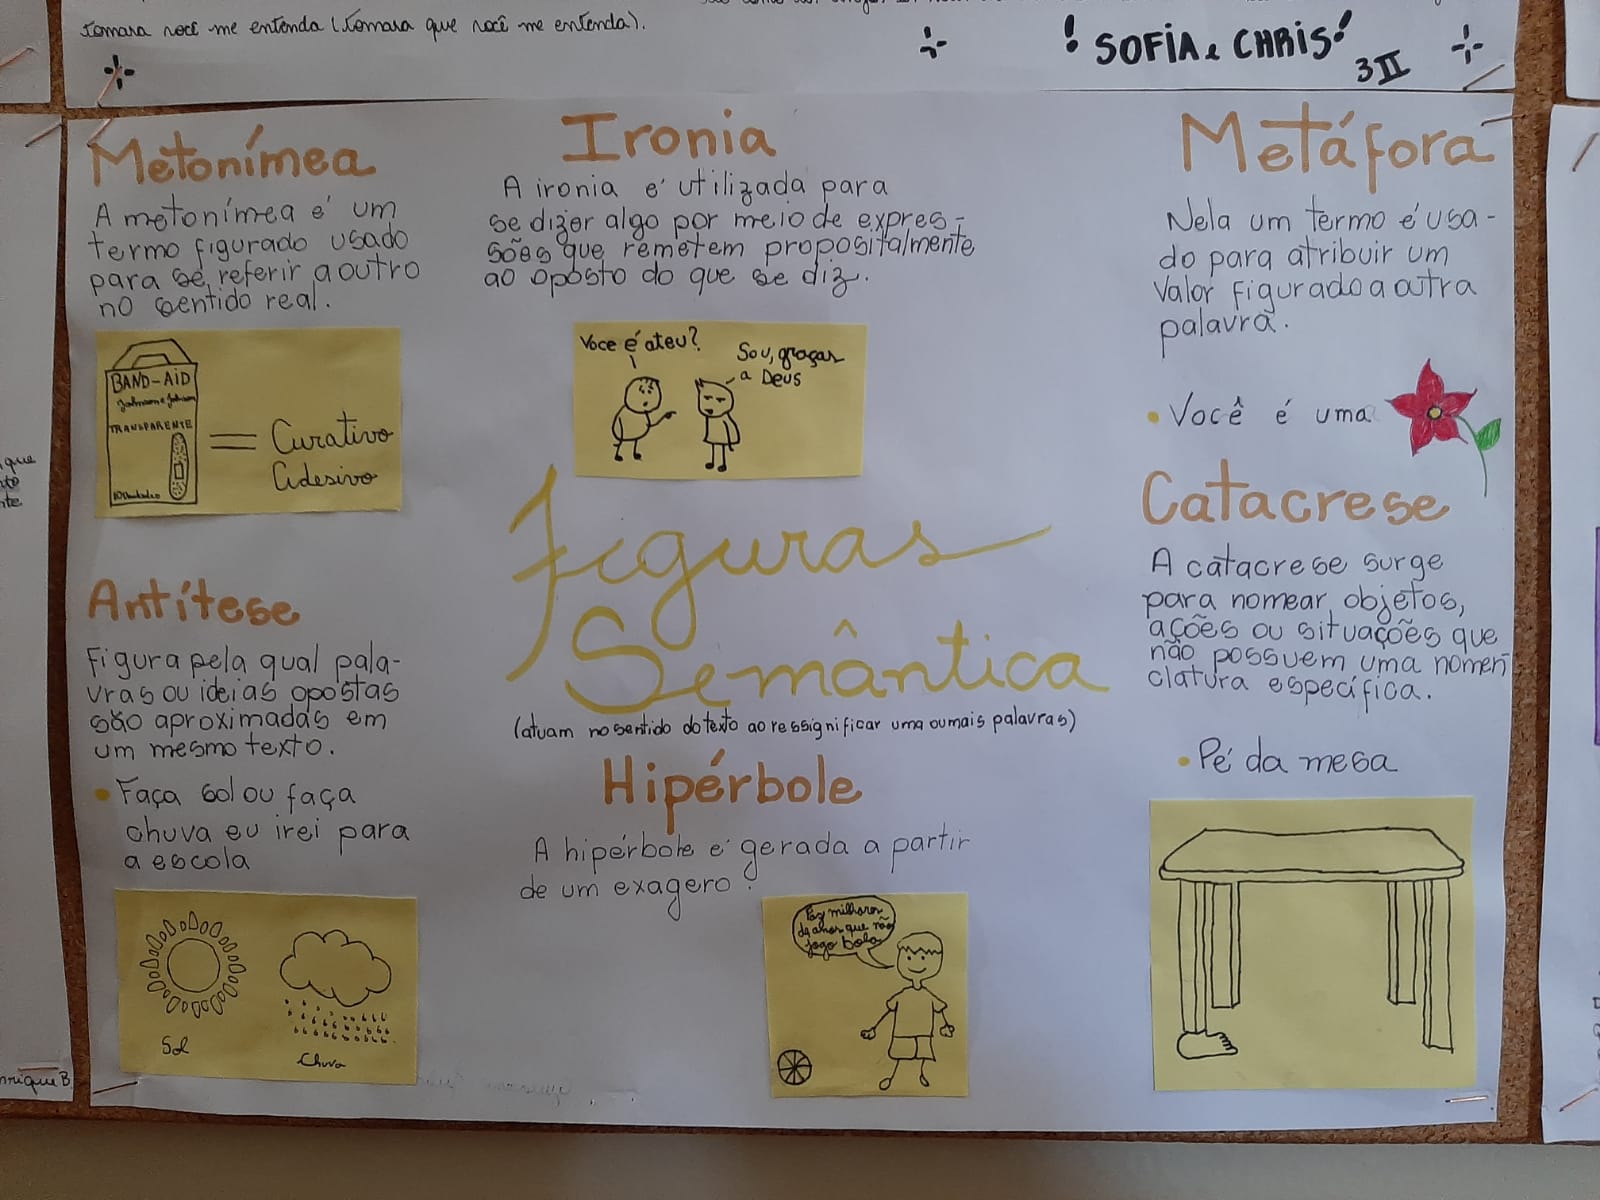 Tomara você me entenda (Tomara que você me entenda).
! SOFIA e CHRIS!
3II
Metonímea
A metonímea é um
termo figurado usado
para se referir a outro
no sentido real.
BAND-AID
Johnson e Johnson
TRANSPARENTE
= Curativo
Adesivo
Ironia
A ironia é utilizada para
se dizer algo por meio de expres-
sões que remetem propositalmente
ao oposto do que se diz.
Voce é ateu?
Sou, graças
a Deus
Metáfora
Nela um termo é usa-
do para atribuir um
valor figurado a outra
palavra.
• Você é uma
Figuras
Semântica
(atuam no sentido do texto ao ressignificar uma ou mais palavras)
Antítese
Figura pela qual pala-
vras ou ideias opostas
são aproximadas em
um mesmo texto.
• Faça sol ou faça
chuva eu irei para
a escola
Sol
Chuva
Hipérbole
A hipérbole é gerada a partir
de um exagero.
Faz milhares
de anos que não
jogo bola
Catacrese
A catacrese surge
para nomear objetos,
ações ou situações que
não possuem uma nomen
clatura específica.
• Pé da mesa
que
nrique B